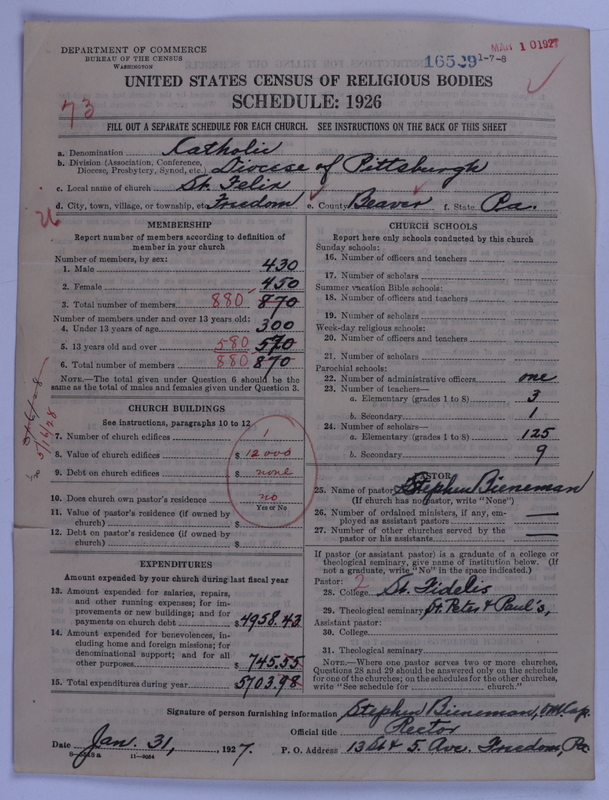 DEPARTMENT OF COMMERCE
BUREAU OF THE CENSUS
WASHINGTON
16539 1-7-8
MAR 10 1927
UNITED STATES CENSUS OF RELIGIOUS BODIES
SCHEDULE: 1926
73
FILL OUT A SEPARATE SCHEDULE FOR EACH CHURCH. SEE INSTRUCTIONS ON THE BACK OF THIS SHEET
a. Denomination Catholic
b. Division (Association, Conference, Diocese, Presbytery, Synod, etc.) Diocese of Pittsburgh
c. Local name of church St. Felix
d. City, town, village, or township, etc. Freedom e. County Beaver f. State Pa.
MEMBERSHIP
Report number of members according to definition of
member in your church
Number of members, by sex:
1. Male 430
2. Female 450
3. Total number of members 880 870
Number of members under and over 13 years old:
4. Under 13 years of age 300
5. 13 years old and over 580 570
6. Total number of members 880 870
NOTE.—The total given under Question 6 should be
same as the total of males and females given under Question 3.
CHURCH BUILDINGS
See instructions, paragraphs 10 to 12
7. Number of church edifices 1
8. Value of church edifices $ 12000
9. Debt on church edifices $ none
10. Does church own pastor's residence no
Yes or No
11. Value of pastor's residence (if owned by
church) $
12. Debt on pastor's residence (if owned by
church) $
5/16/28
EXPENDITURES
Amount expended by your church during last fiscal year
13. Amount expended for salaries, repairs,
and other running expenses; for improvements
or new buildings; and for
payments on church debt $ 4958.43
14. Amount expended for benevolences, including
home and foreign missions; for
denominational support; and for all
other purposes $ 745.55
15. Total expenditures during year 5703.98
CHURCH SCHOOLS
Report here only schools conducted by this church
Sunday schools:
16. Number of officers and teachers
17. Number of scholars
Summer vacation Bible schools:
18. Number of officers and teachers
19. Number of scholars
Week-day religious schools:
20. Number of officers and teachers
21. Number of scholars
Parochial schools:
22. Number of administrative officers one
23. Number of teachers—
a. Elementary (grades 1 to 8) 3
b. Secondary 1
24. Number of scholars—
a. Elementary (grades 1 to 8) 125
b. Secondary 9
PASTOR
25. Name of pastor Stephen Bieneman
(If church has no pastor, write "None")
26. Number of ordained ministers, if any, employed
as assistant pastors
27. Number of other churches served by the
pastor or his assistants
If pastor (or assistant pastor) is a graduate of a college or
theological seminary, give name of institution below. (If
not a graduate, write "No" in the space indicated.)
Pastor:
28. College 2 St. Fidelis
29. Theological seminary St. Peter & Paul's,
Assistant pastor:
30. College
31. Theological seminary
NOTE.—Where one pastor serves two or more churches,
Questions 28 and 29 should be answered only on the schedule
for one of the churches; on the schedules for the other churches,
write "See schedule for church."
Signature of person furnishing information Stephen Bieneman, O.M.Cap.
Official title Rector
Date Jan. 31, 1927. P. O. Address 13 St & 5. Ave. Freedom, Pa